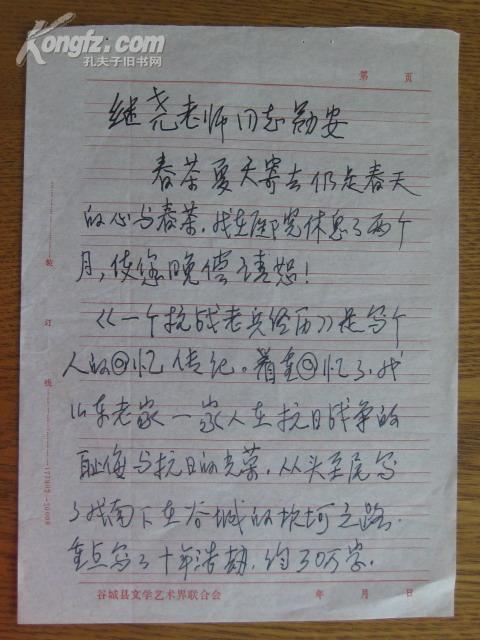 Kongfz.com
孔夫子旧书网
第 页
继尧老师同志勋安
春茶夏天寄去仍是春天
的心与春茶.我在医院休息了两个
月,使您晚偿请恕!
《一个抗战老兵经历》是写个
人的回忆传记。着重回忆了我
山东老家一家人在抗日战争的
耻侮与抗日的光荣,从头至尾写
了我南下在谷城的坎坷之路.
重点写了十年浩劫,约30万字.
谷城县文学艺术界联合会 年 月 日
装 订 线